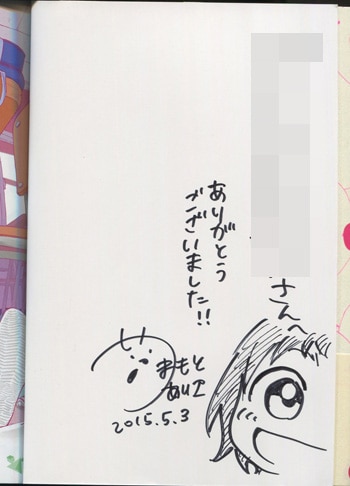 さんへ
ありがとう
ございました!!
まもと
ありエ
2015.5.3